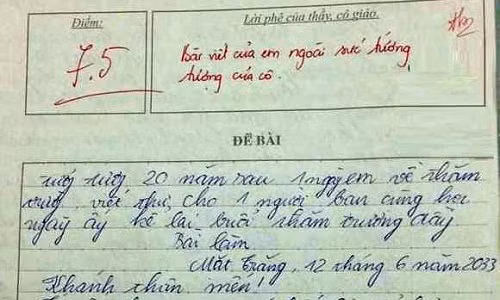 Điểm:
Lời phê của thầy, cô giáo.
7.5
Bài viết của em ngoài sức tưởng
tượng của cô.
ĐỀ BÀI
tưởng tượng 20 năm sau 1 ngày em về thăm
trường, viết thư cho 1 người bạn cùng học
ngày ấy kể lại buổi thăm trường đấy
Bài làm
Mặt Trăng, 12 tháng 6 năm 2033
Khanh thân mến!